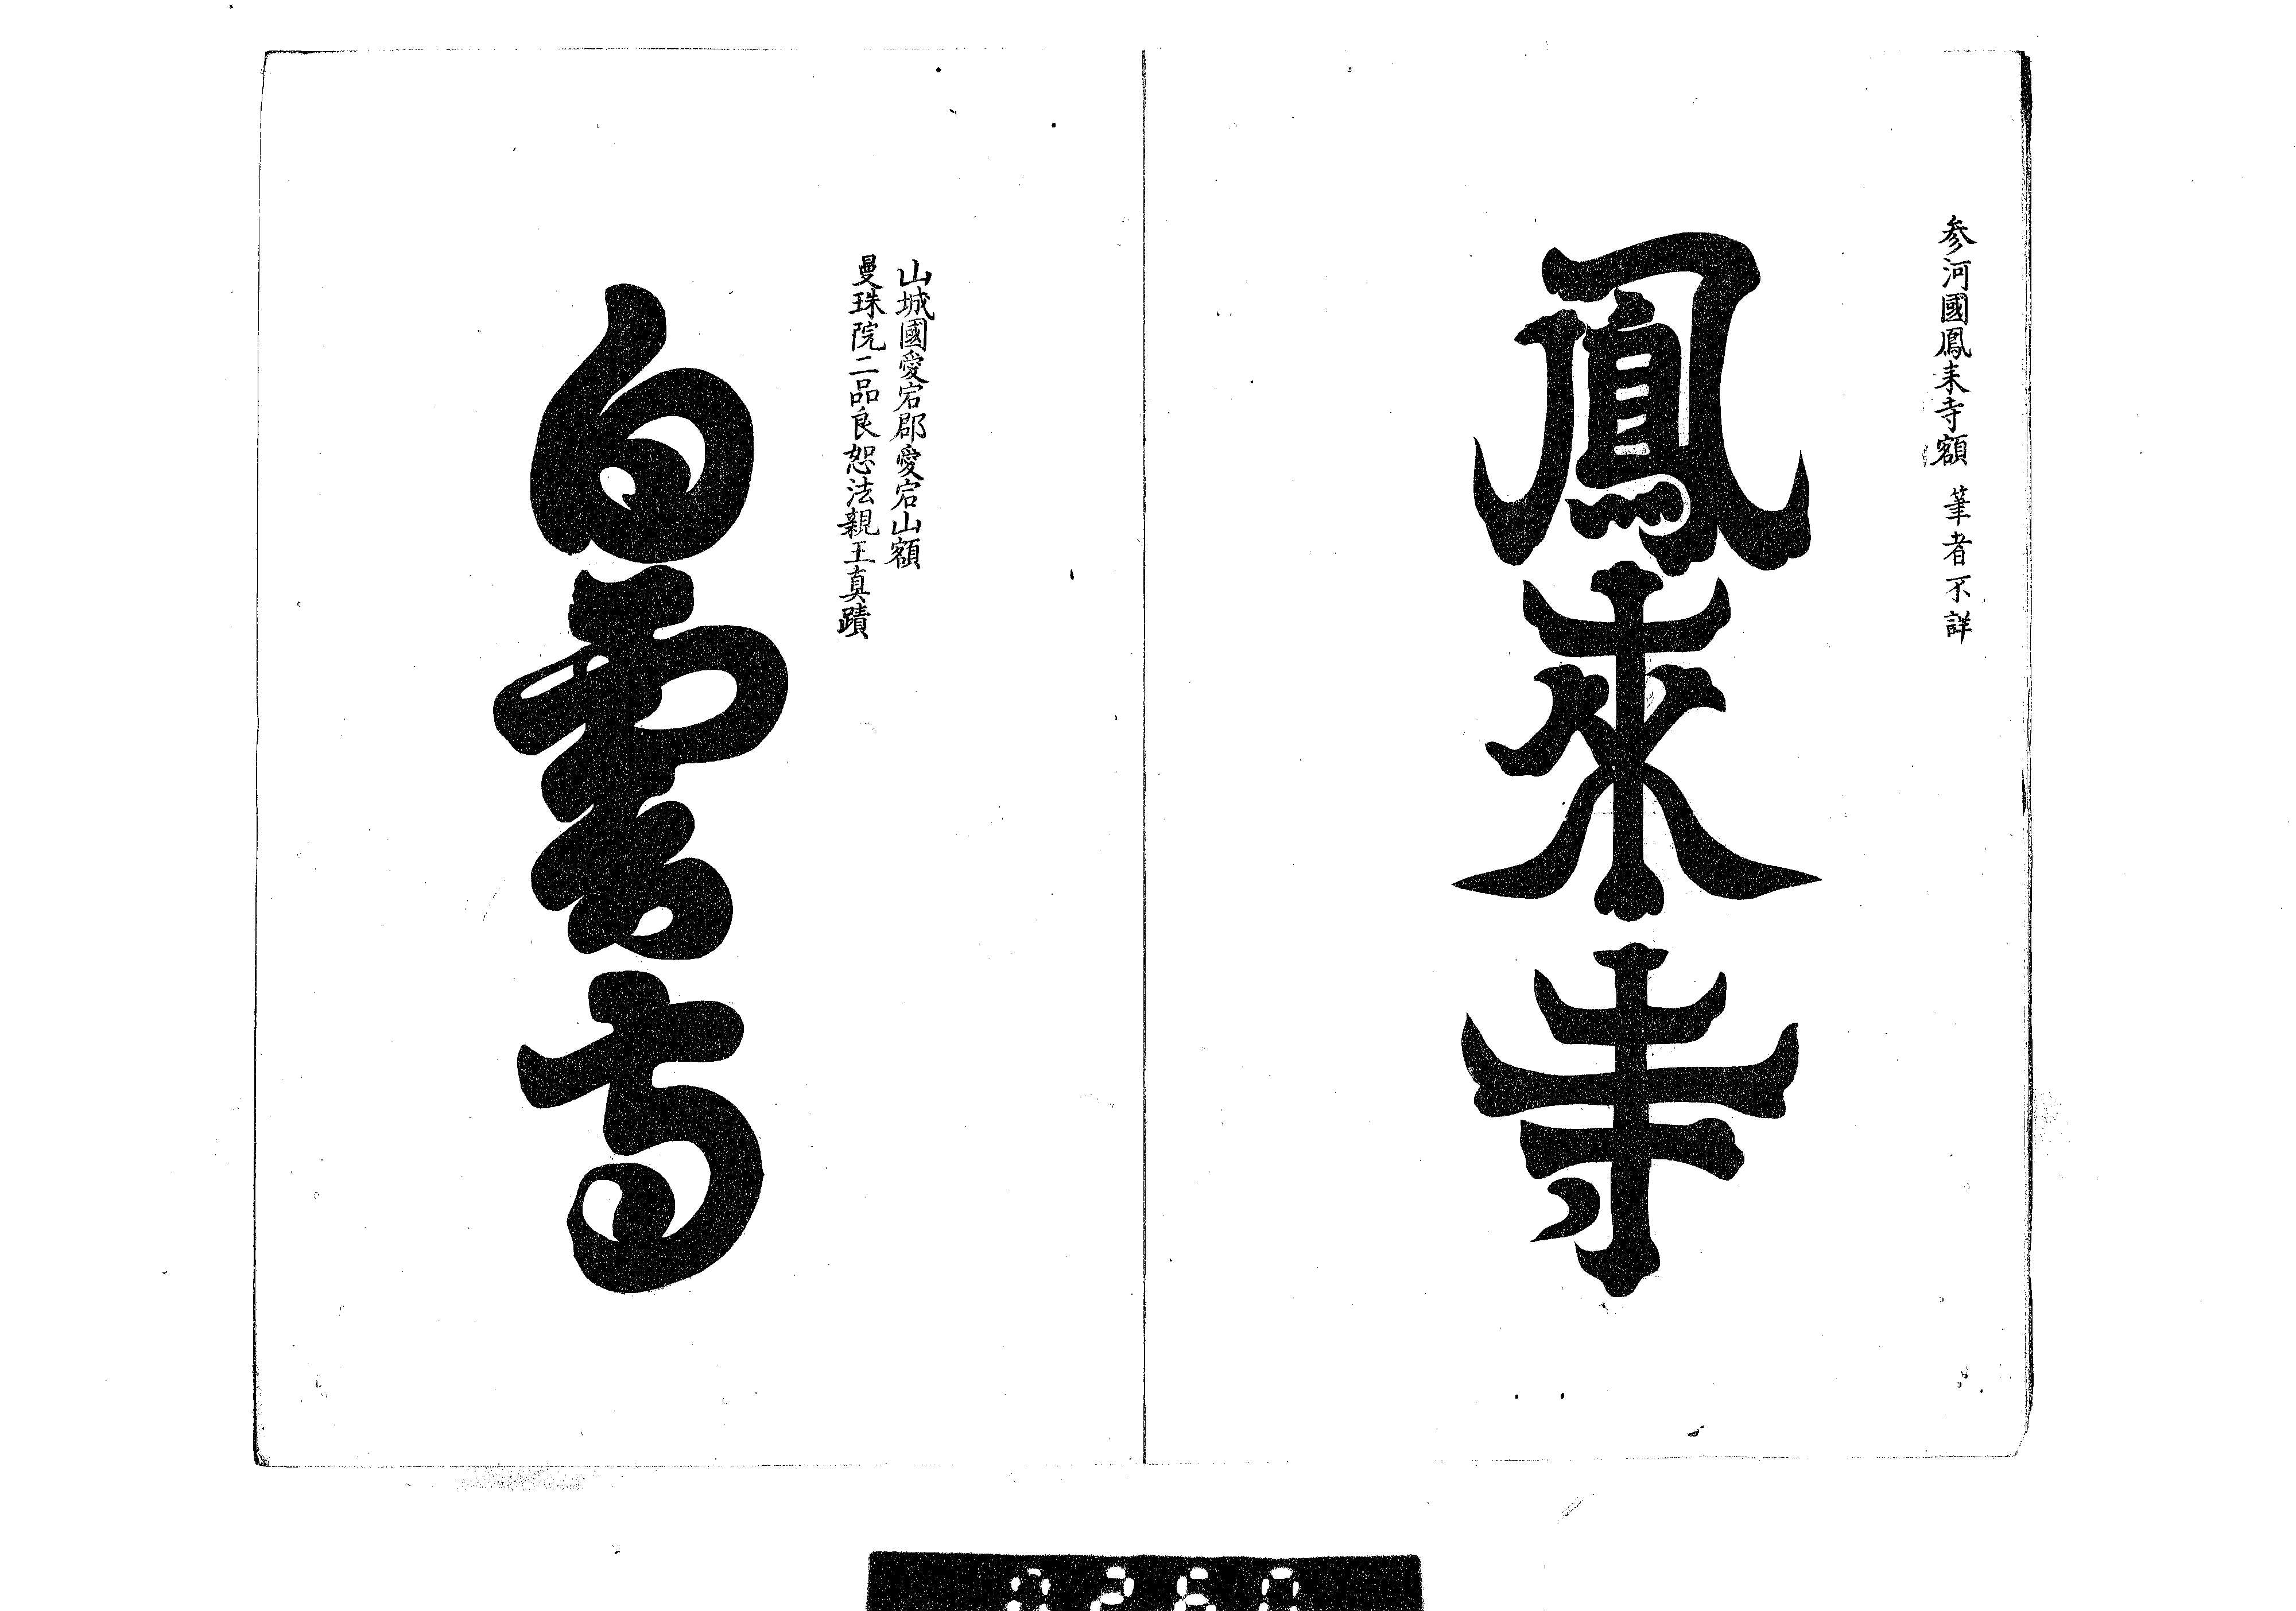 参河國鳳来寺額　筆者不詳
鳳來寺
山城國愛宕郡愛宕山額
曼珠院二品良恕法親王真蹟
白雲寺